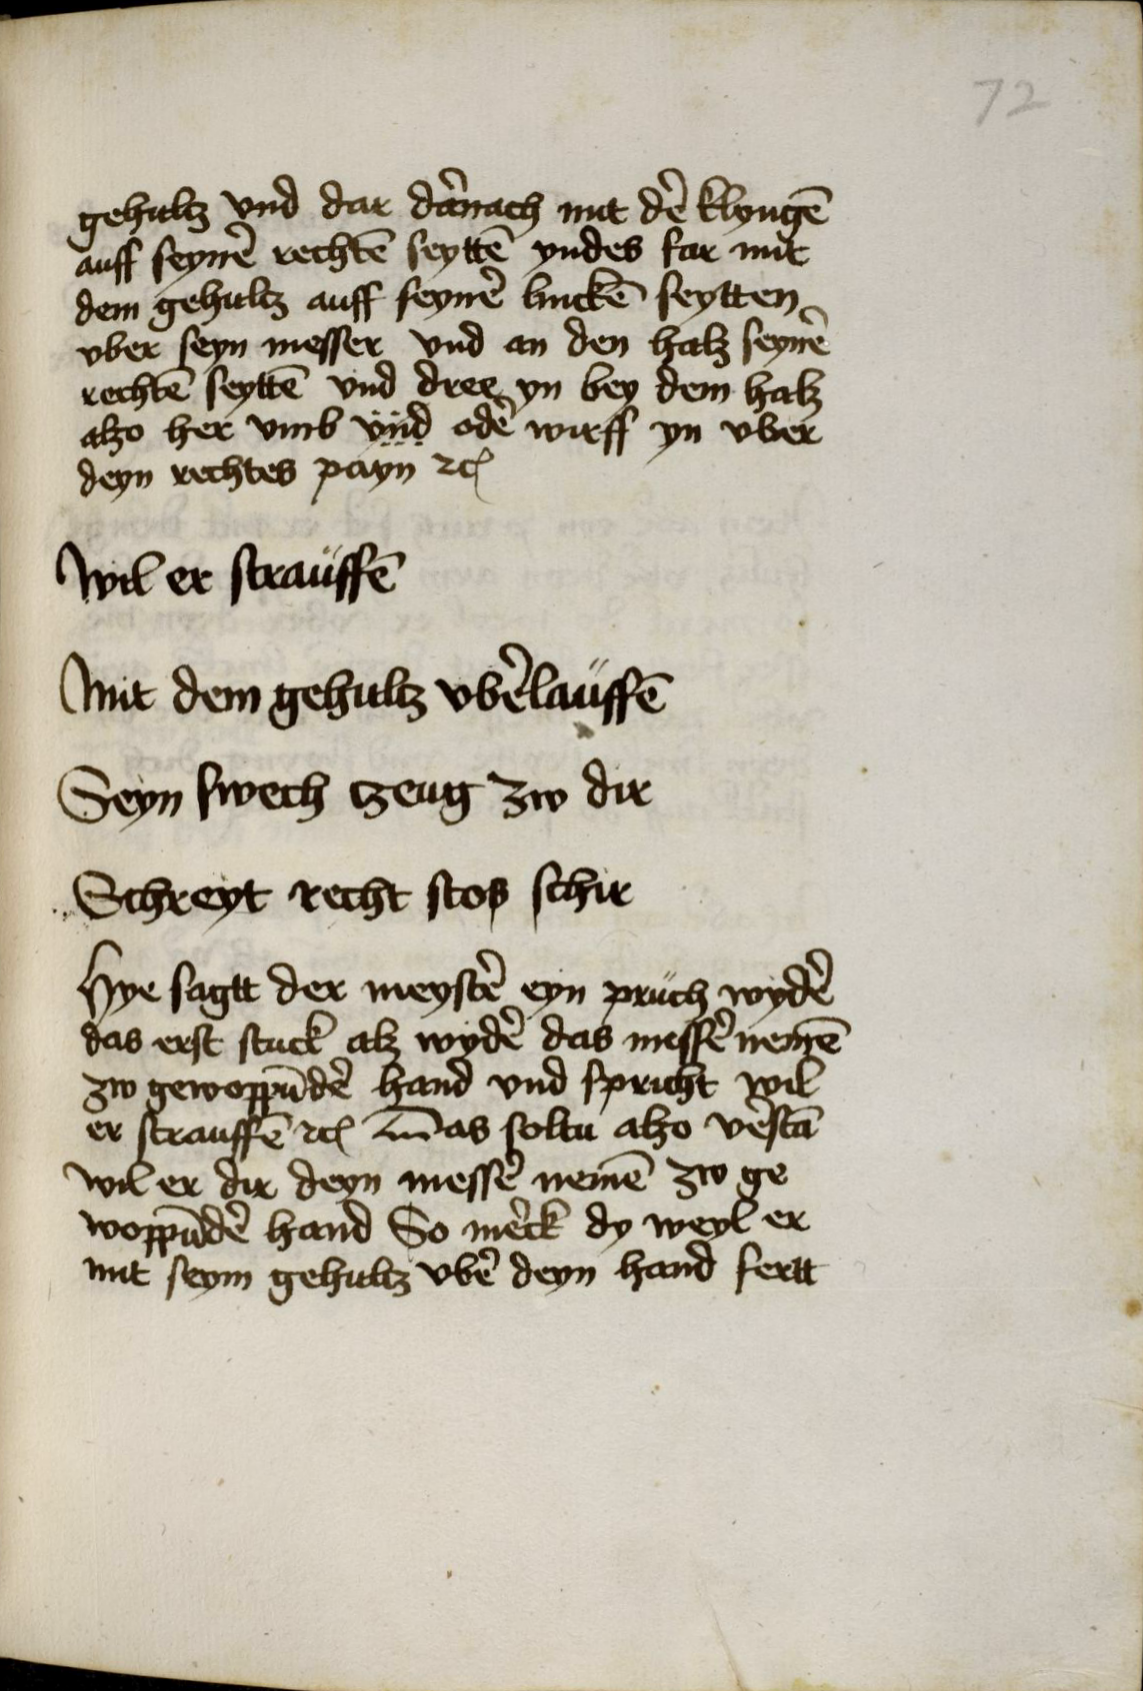 72
gehultz vnd dar dar̃nach mit dẽ klyngẽ
auff seynẽ rechtẽ seyttẽ yndes far mit
dem gehultz auff seynẽ linckẽ seytten
vber seyn messer vnd an den halz seynẽ
rechtẽ seyttẽ vnd dree yn bey dem halz
alzo her vmb vnd odẽ wirff yn vber
deyn rechtes payn ⁊c̃
Wil er straüffẽ
Mit dem gehultz vbẽlaüffẽ
Seyn swech tzeug zw dir
Schreyt recht stos schir
Hye sagtt der meystẽ eyn prüch wydẽ
das erst stuck alz wydẽ das messẽ nemẽ
zw gewoppũdẽ hand vnd spricht wil
er strauffẽ ⁊c̃ Das soltu alzo vẽstã
wil er dir deyn messẽ nemẽ zw ge
woppũdẽ hand So mẽck dy weyl er
mit seym gehultz vbẽ deyn hand fertt